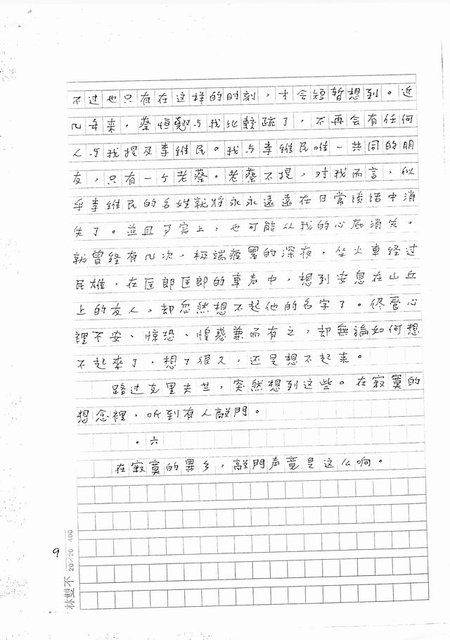 不过也只有在这样的时刻，才会短暂想到。近
几年来，蔡恒翹与我比較疏了，不再会有任何
人与我提及李维民。我与李维民唯一共同的朋
友，只有一个老蔡。老蔡不提，对我而言，似
乎李维民的名姓就将永永遠遠在日常谈话中消
失了。並且事实上，也可能从我的心底消失。
就曾经有几次，极端疲累的深夜，坐火車经过
民雄，在匡郎匡郎的車声中，想到安息在山丘
上的友人，却忽然想不起他的名字了。終當心
裡不安、惊恐、惶惑兼而有之，却無論如何想
不起来了，想了很久，还是想不起来。
路过克里夫兰，突然想到这些。在寂寞的
想念裡，听到有人敲門。
·六
在寂寞的異乡，敲門声竟是这么响。
9
林雙不
20×20=400